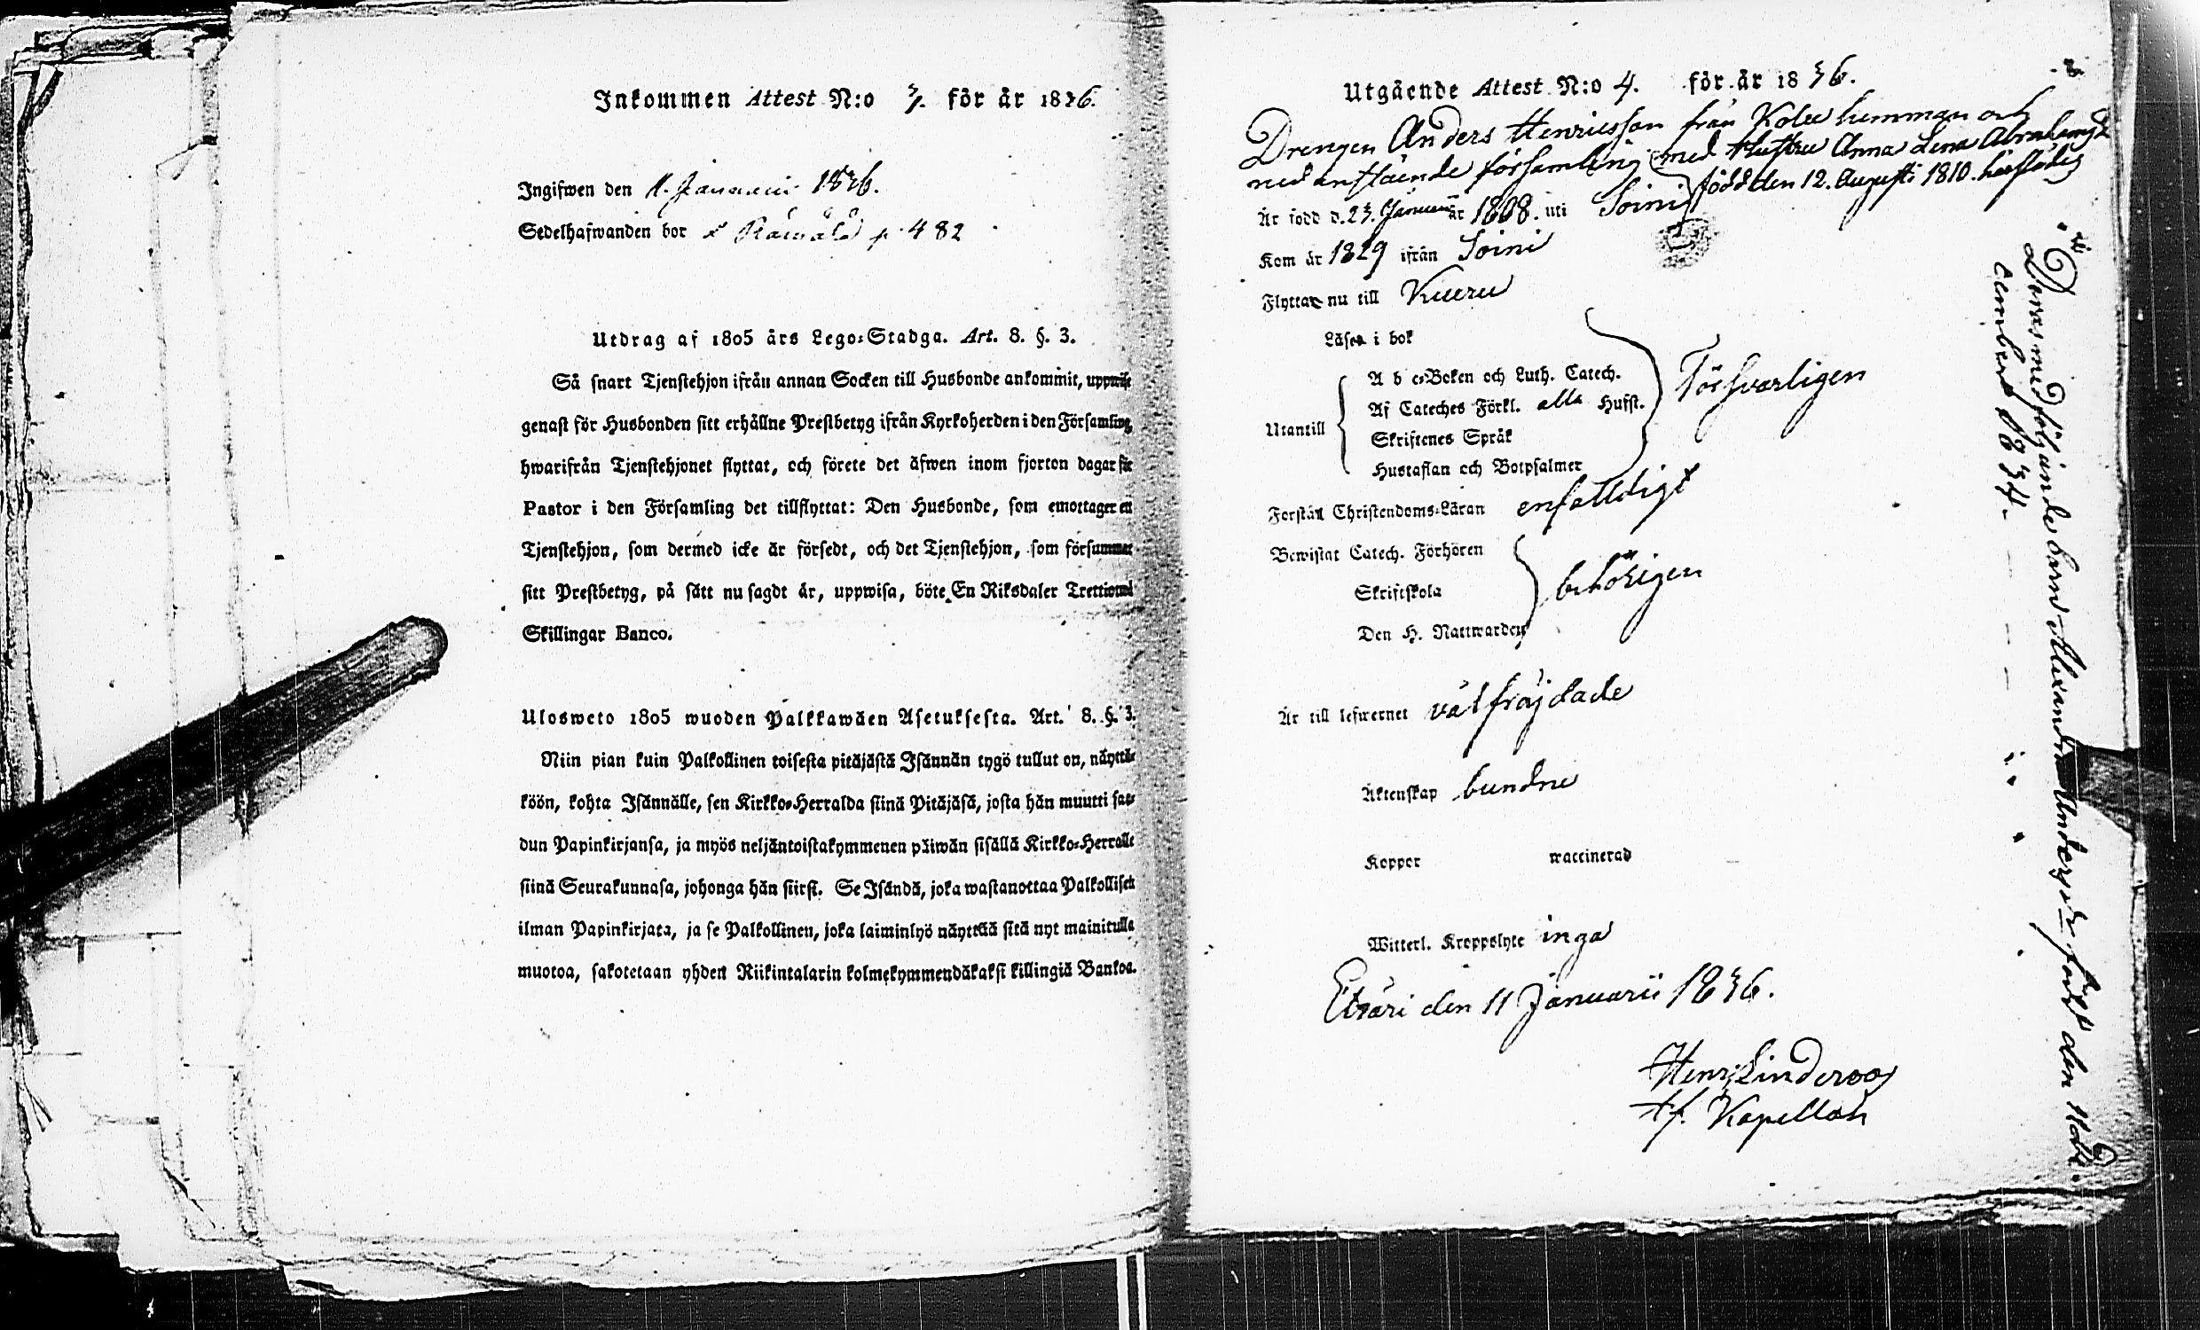 Inkommen Attest N:o 7. för år 1836.
Ingifwen den Januarii 1836.
Sedelhafwanden bor p. 482
Utdrag af 1805 års Lego-Stadga. Art. 8. §. 3.
Så snart Tjenstehjon ifrån annan Socken till Husbonde ankommit, uppwise
genast för Husbonden sitt erhållne Prestbetyg ifrån Kyrkoherden i den Församling
hwarifrån Tjenstehjonet flyttat, och förete det äfwen inom fjorton dagar för
Pastor i den Församling det tillflyttat: Den Husbonde, som emottager ett
Tjenstehjon, som dermed icke är försedt, och det Tjenstehjon, som försummar
sitt Prestbetyg, på sätt nu sagdt är, uppwisa, böte En Riksdaler Trettiotwå
Skillingar Banco.
Ulosweto 1805 wuoden Palkkawäen Asetuksesta. Art. 8. §. 3.
Niin pian kuin Palkollinen toisesta pitäjästä Isännän tygö tullut on, näyttä-
köön, kohta Isännälle, sen Kirkko-Herralda siinä Pitäjäsä, josta hän muutti saa-
dun Papinkirjansa, ja myös neljäntoistakymmenen päiwän sisällä Kirkko-Herralle
siinä Seurakunnasa, johonga hän siirsi. Se Isändä, joka wastanottaa Palkollisen
ilman Papinkirjata, ja se Palkollinen, joka laiminlyö näyttää sitä nyt mainitulla
muotoa, sakotetaan yhden Riikintalarin kolmekymmendäkaksi killingiä Bankoa.
Utgående Attest N:o 4. för år 1836.
Drengen Anders Henricsson från Kolu hemman och
nedanstående församling med Hustru Anna Lena Abrahamsdr
född den 12. Augusti 1810. härstädes
Är född d. 23. Januarii år 1808. uti Soini
Kom år 1829 ifrån Soini
Flyttar nu till Kuru
Läser i bok
Utantill
A b c-Boken och Luth. Catech.
Af Cateches Förkl. alla Hufst.
Skriftenes Språk
Hustaflan och Botpsalmer
Försvarligen
Förstår Christendoms-Läran enfalldigt
Bewistat Catech. Förhören
Skriftskola
Den H. Nattwarden
behörigen
Är till lefwernet välfräjdade
Äktenskap bundne
Koppor waccinerad
Witterl. Kroppslyte inga
Etsäri den 11 Januarii 1836.
Henr. Linderoos
Kapellan
Deras medföljande barn Alexandra Andersdr född den 11 De-
cember 1834.